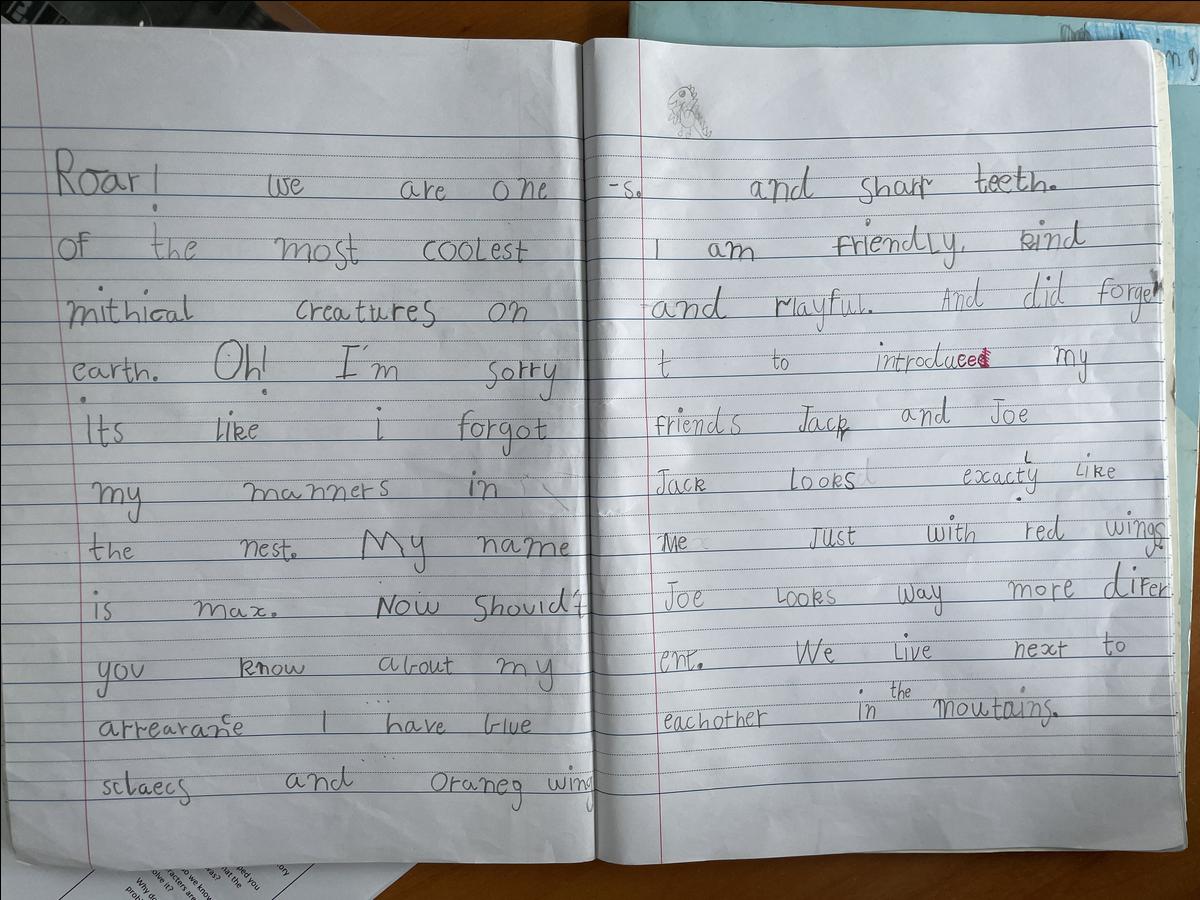 Roar! we are one
of the most coolest
mithical creatures on
earth. Oh! I'm sorry
its like i forgot
my manners in
the nest. My name
is max. Now Should't
you know about my
appearance I have blue
sclaecs and oraneg wing
-s. and sharp teeth.
I am friendly, kind
and playful. And did forge
t to introduce my
friends Jack and Joe
Jack looks exactly like
Me Just with red wings.
Joe looks way more difer
ent. We live next to
eachother in the moutains.